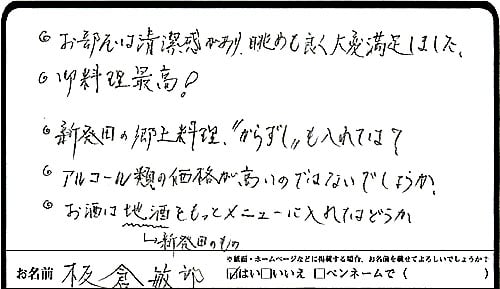 ◎ お部屋は清潔感があり、眺めも良く大変満足しました。
◎ 御料理最高!
◎ 新発田の郷土料理、"からずし"も入れては?
◎ アルコール類の価格が高いのではないでしょうか。
◎ お酒は地酒をもっとメニューに入れてはどうか
↳新発田のもの
※紙面・ホームページなどに掲載する場合、お名前を載せてよろしいでしょうか?
お名前 板倉敏郎 ☑はい □いいえ □ペンネームで ( )